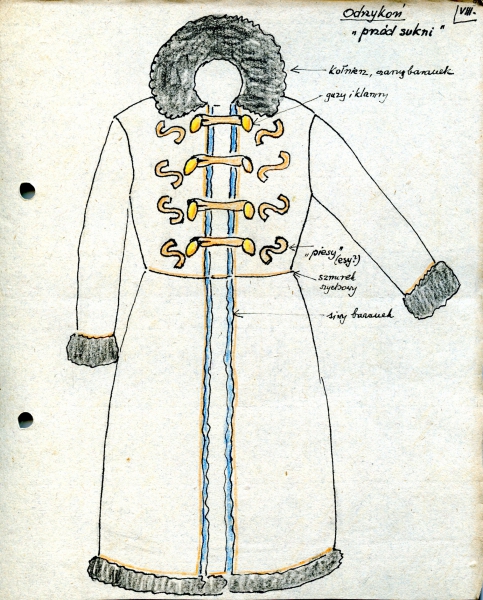 Odrzykoń
VIII.
"przód sukni"
kołnierz, czarny baranek
guzy i klamry
"piesy"
(esy?)
szmurek
sychowy
siwy baranek